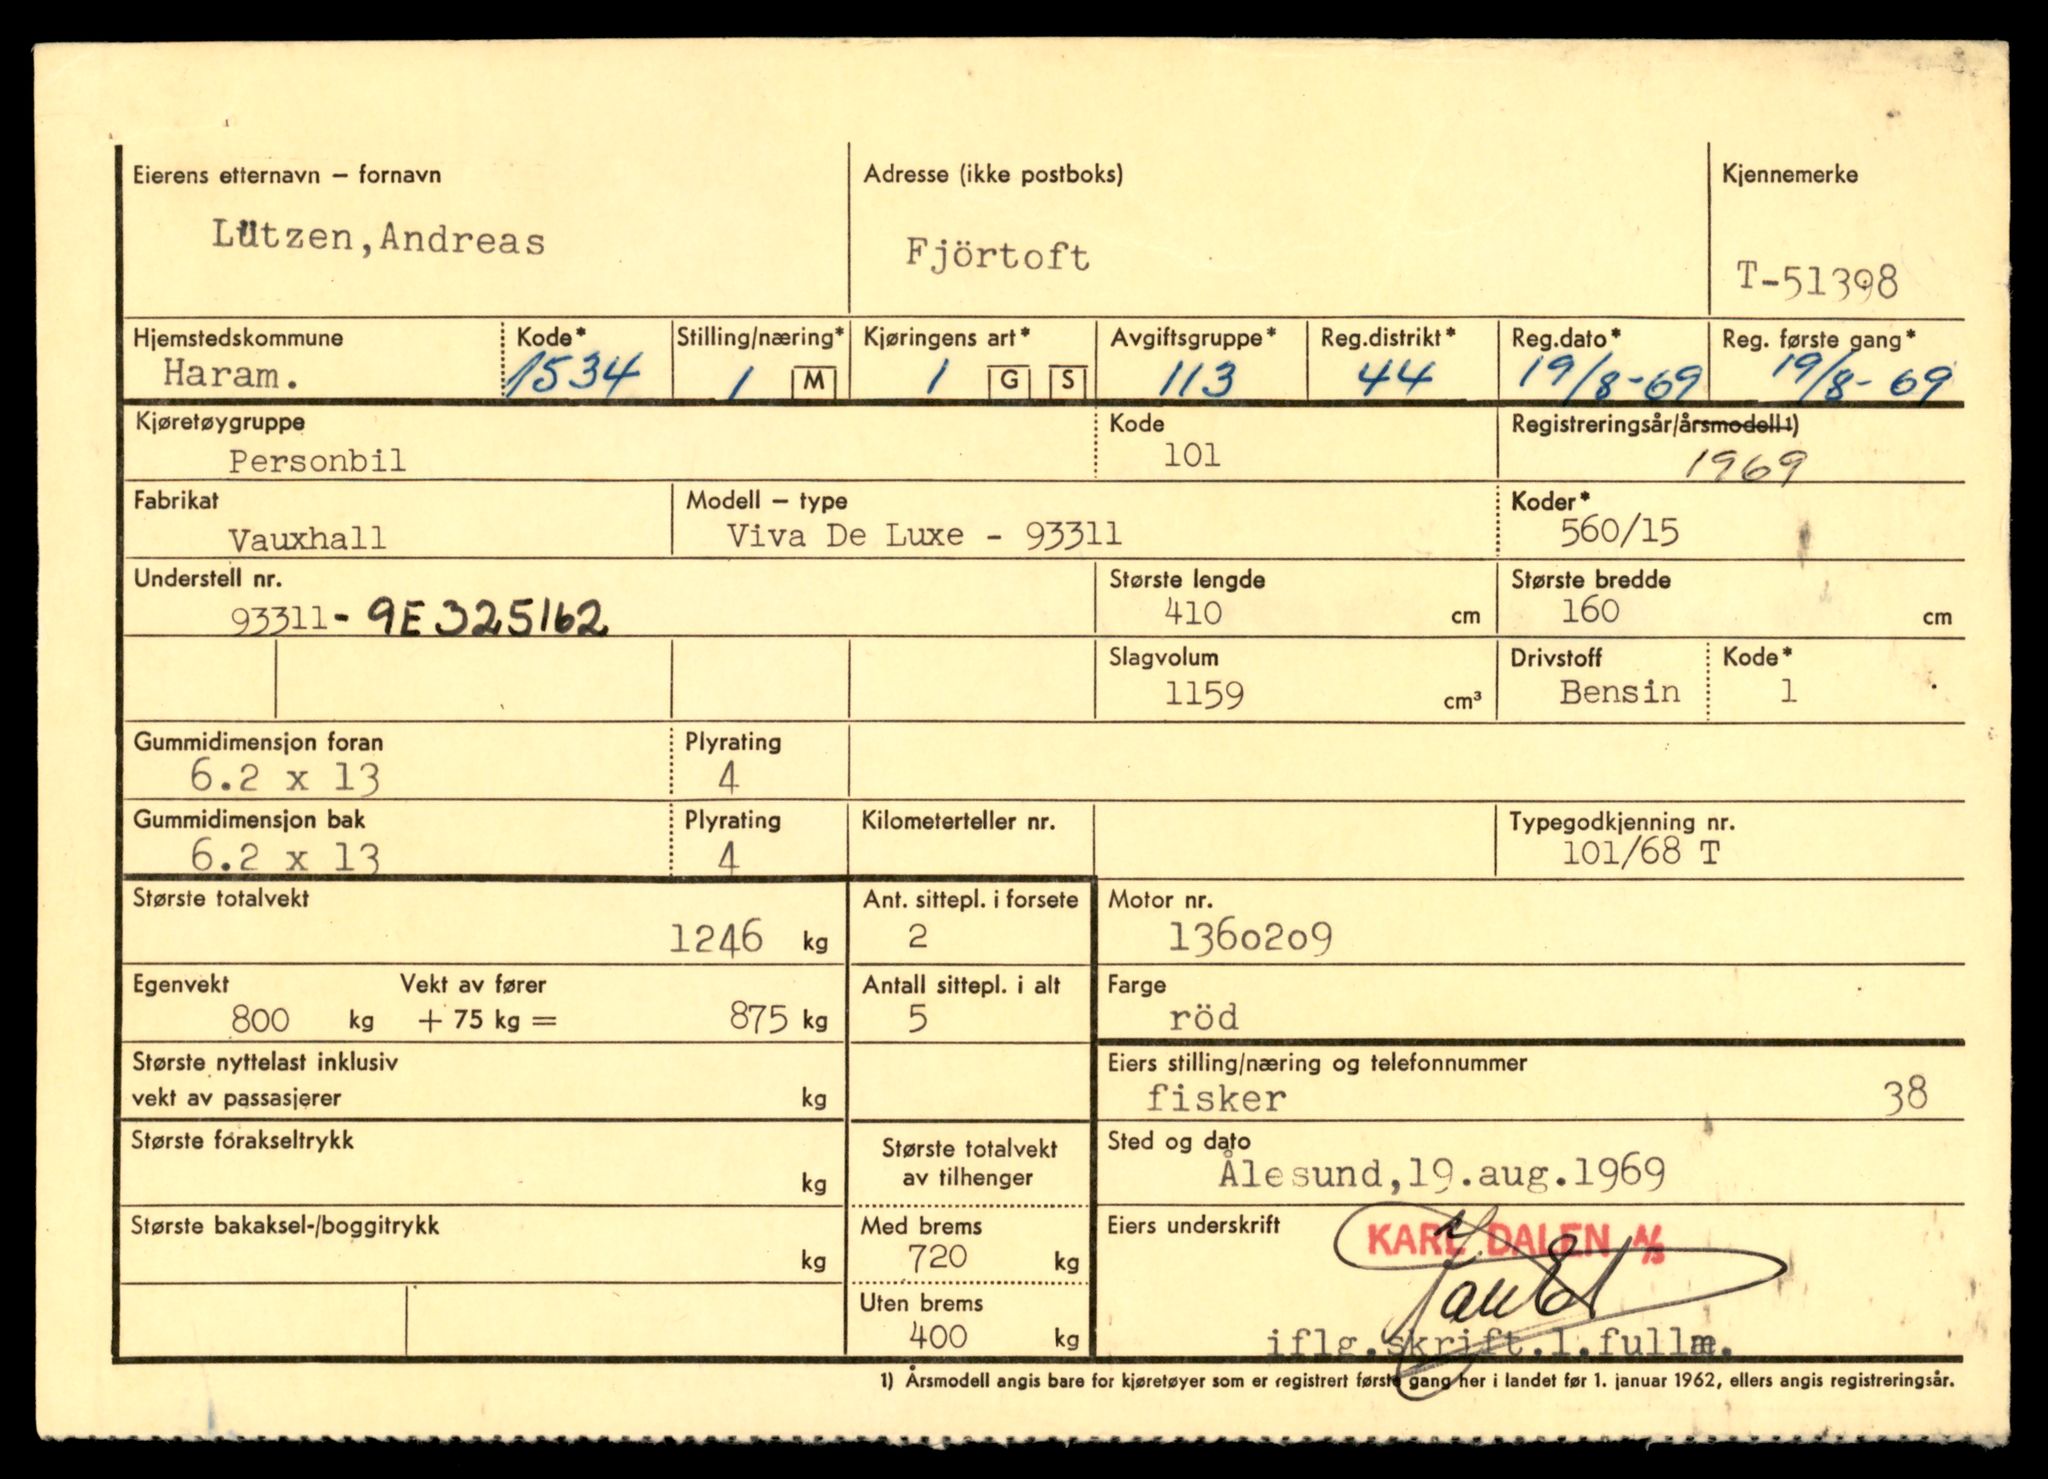 Eierens etternavn – fornavn
Lützen,Andreas
Adresse (ikke postboks)
Fjörtoft
Kjennemerke
T-51398
Hjemstedskommune
Haram.
Kode*
1534
Stilling/næring*
1 M
Kjøringens art*
1 G S
Avgiftsgruppe*
113
Reg.distrikt*
44
Reg.dato*
19/8-69
Reg. første gang*
19/8-69
Kjøretøygruppe
Personbil
Kode
101
Registreringsår/årsmodell 1)
1969
Fabrikat
Vauxhall
Modell – type
Viva De Luxe - 93311
Koder*
560/15
Understell nr.
93311-9E325162
Største lengde
410 cm
Største bredde
160 cm
Slagvolum
1159 cm³
Drivstoff
Bensin
Kode*
1
Gummidimensjon foran
6.2 x 13
Plyrating
4
Gummidimensjon bak
6.2 x 13
Plyrating
4
Kilometerteller nr.
Typegodkjenning nr.
101/68 T
Største totalvekt
1246 kg
Ant. sittepl. i forsete
2
Motor nr.
1360209
Egenvekt Vekt av fører
800 kg + 75 kg = 875 kg
Antall sittepl. i alt
5
Farge
röd
Største nyttelast inklusiv
vekt av passasjerer kg
Eiers stilling/næring og telefonnummer
fisker 38
Største forakseltrykk
kg
Største totalvekt
av tilhenger
Sted og dato
Ålesund,19.aug.1969
Største bakaksel-/boggitrykk
kg
Med brems
720 kg
Uten brems
400 kg
Eiers underskrift
KARL DALEN A/S
iflg.skrift.l.fullm.
1) Årsmodell angis bare for kjøretøyer som er registrert første gang her i landet før 1. januar 1962, ellers angis registreringsår.